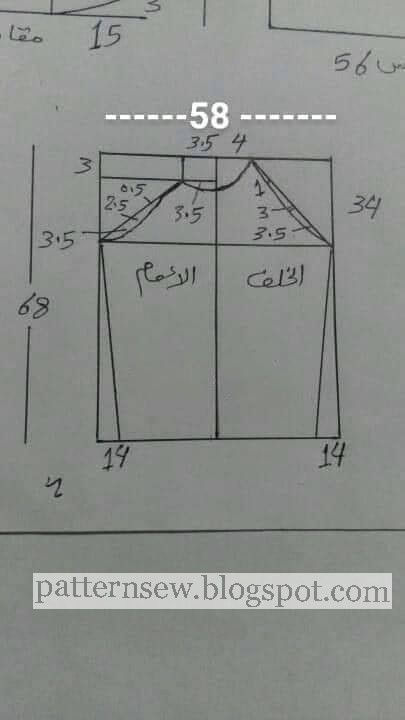 3
15 مقا
س 56
------58 -------
3.5 4
3
0.5
2.5
3.5
1
3
3.5
34
3.5
68
الامام
الخلف
14
14
patternsew.blogspot.com